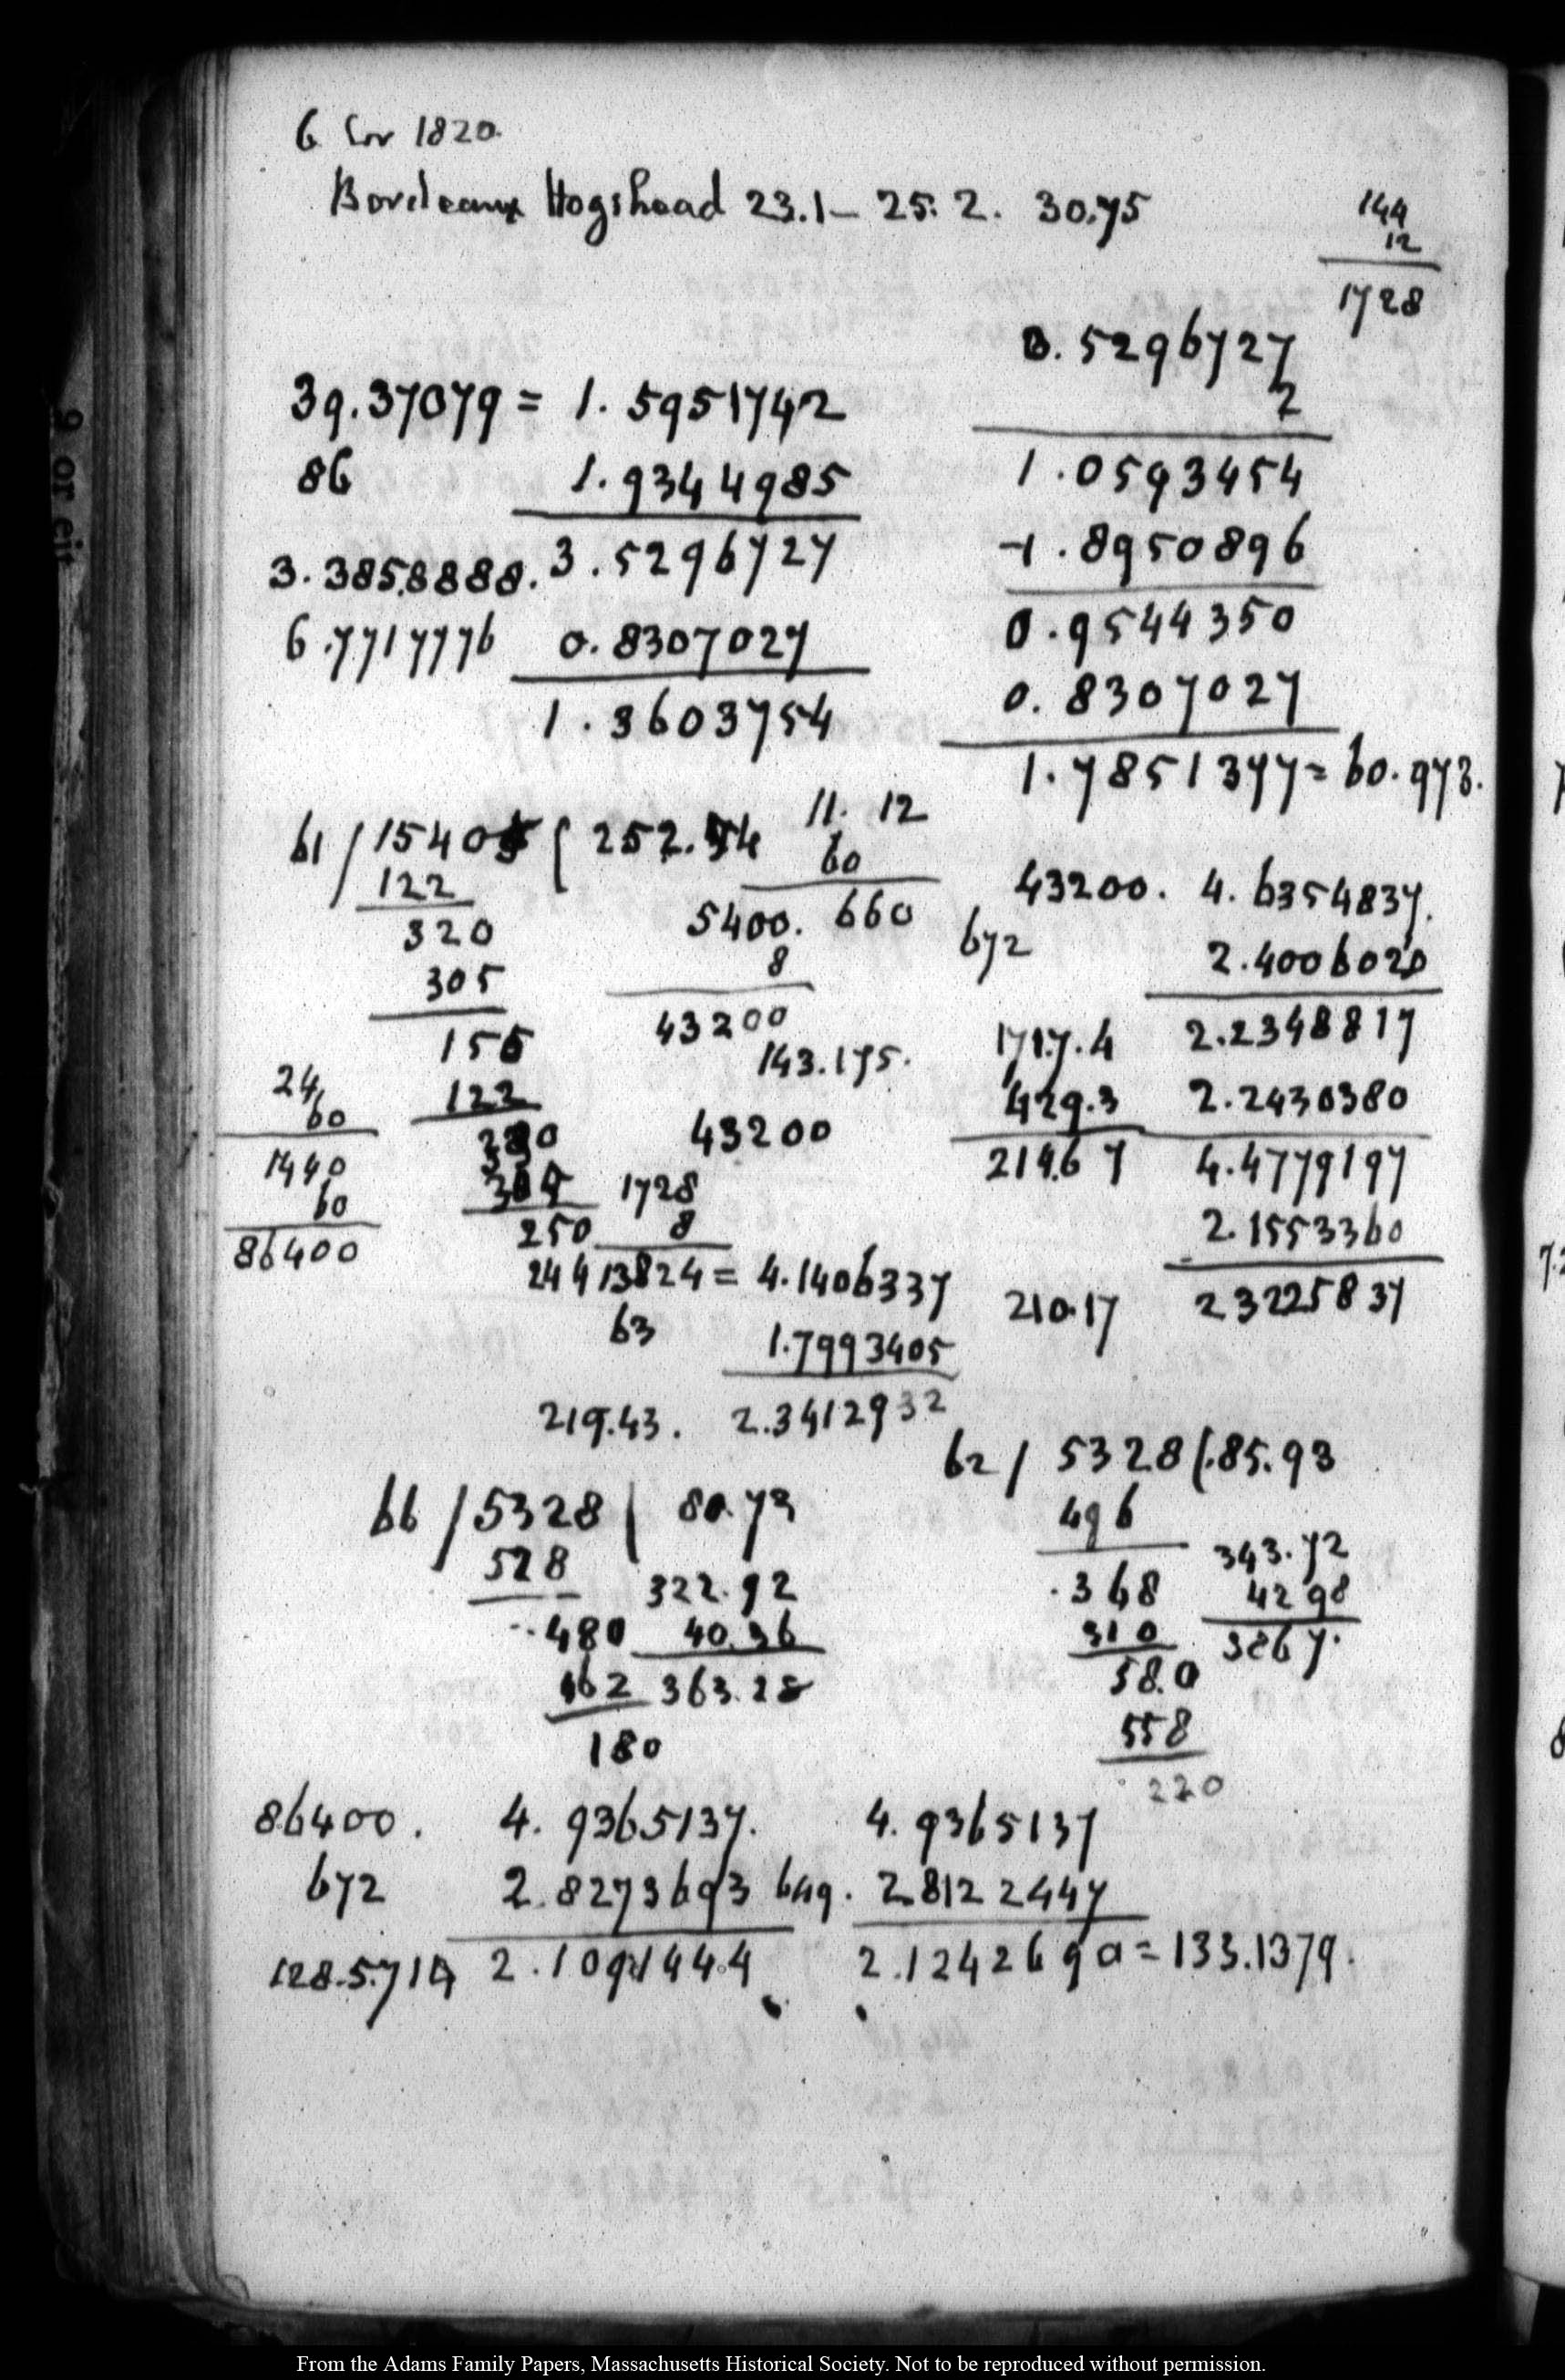 6 Cov 1820.
Bordeaux Hogshead 23.1 – 25. 2. 30.75
144
12
1728
39.37079 = 1.5951742
86 1.9344985
3.3858888. 3.5296727
6.7717776 0.8307027
1.3603754
0.5296727
2
1.0593454
-1.8950896
0.9544350
0.8307027
1.7851377 = 60.973.
61 / 15405 ( 252.54
122
320
305
155
122
330
305
250
244
11. 12
60
5400. 660
8
43200
143.175.
43200
24
60
1440
60
86400
1728
8
13824 = 4.1406337
63 1.7993405
219.43. 2.3412932
43200. 4.6354837.
672 2.4006020
1717.4 2.2348817
429.3 2.2430380
2146.7 4.4779197
2.1553360
210.17 2.3225837
66 / 5328 ( 80.73
528
480
462
180
322.92
40.36
363.28
62 / 5328 (.85.93
496
368
310
58.0
558
220
343.72
42 98
3867.
86400. 4.9365137.
672 2.8273693
128.5714 2.1091444
4.9365137
649. 2.8122447
2.1242690 = 133.1379.
9 or eit
From the Adams Family Papers, Massachusetts Historical Society. Not to be reproduced without permission.